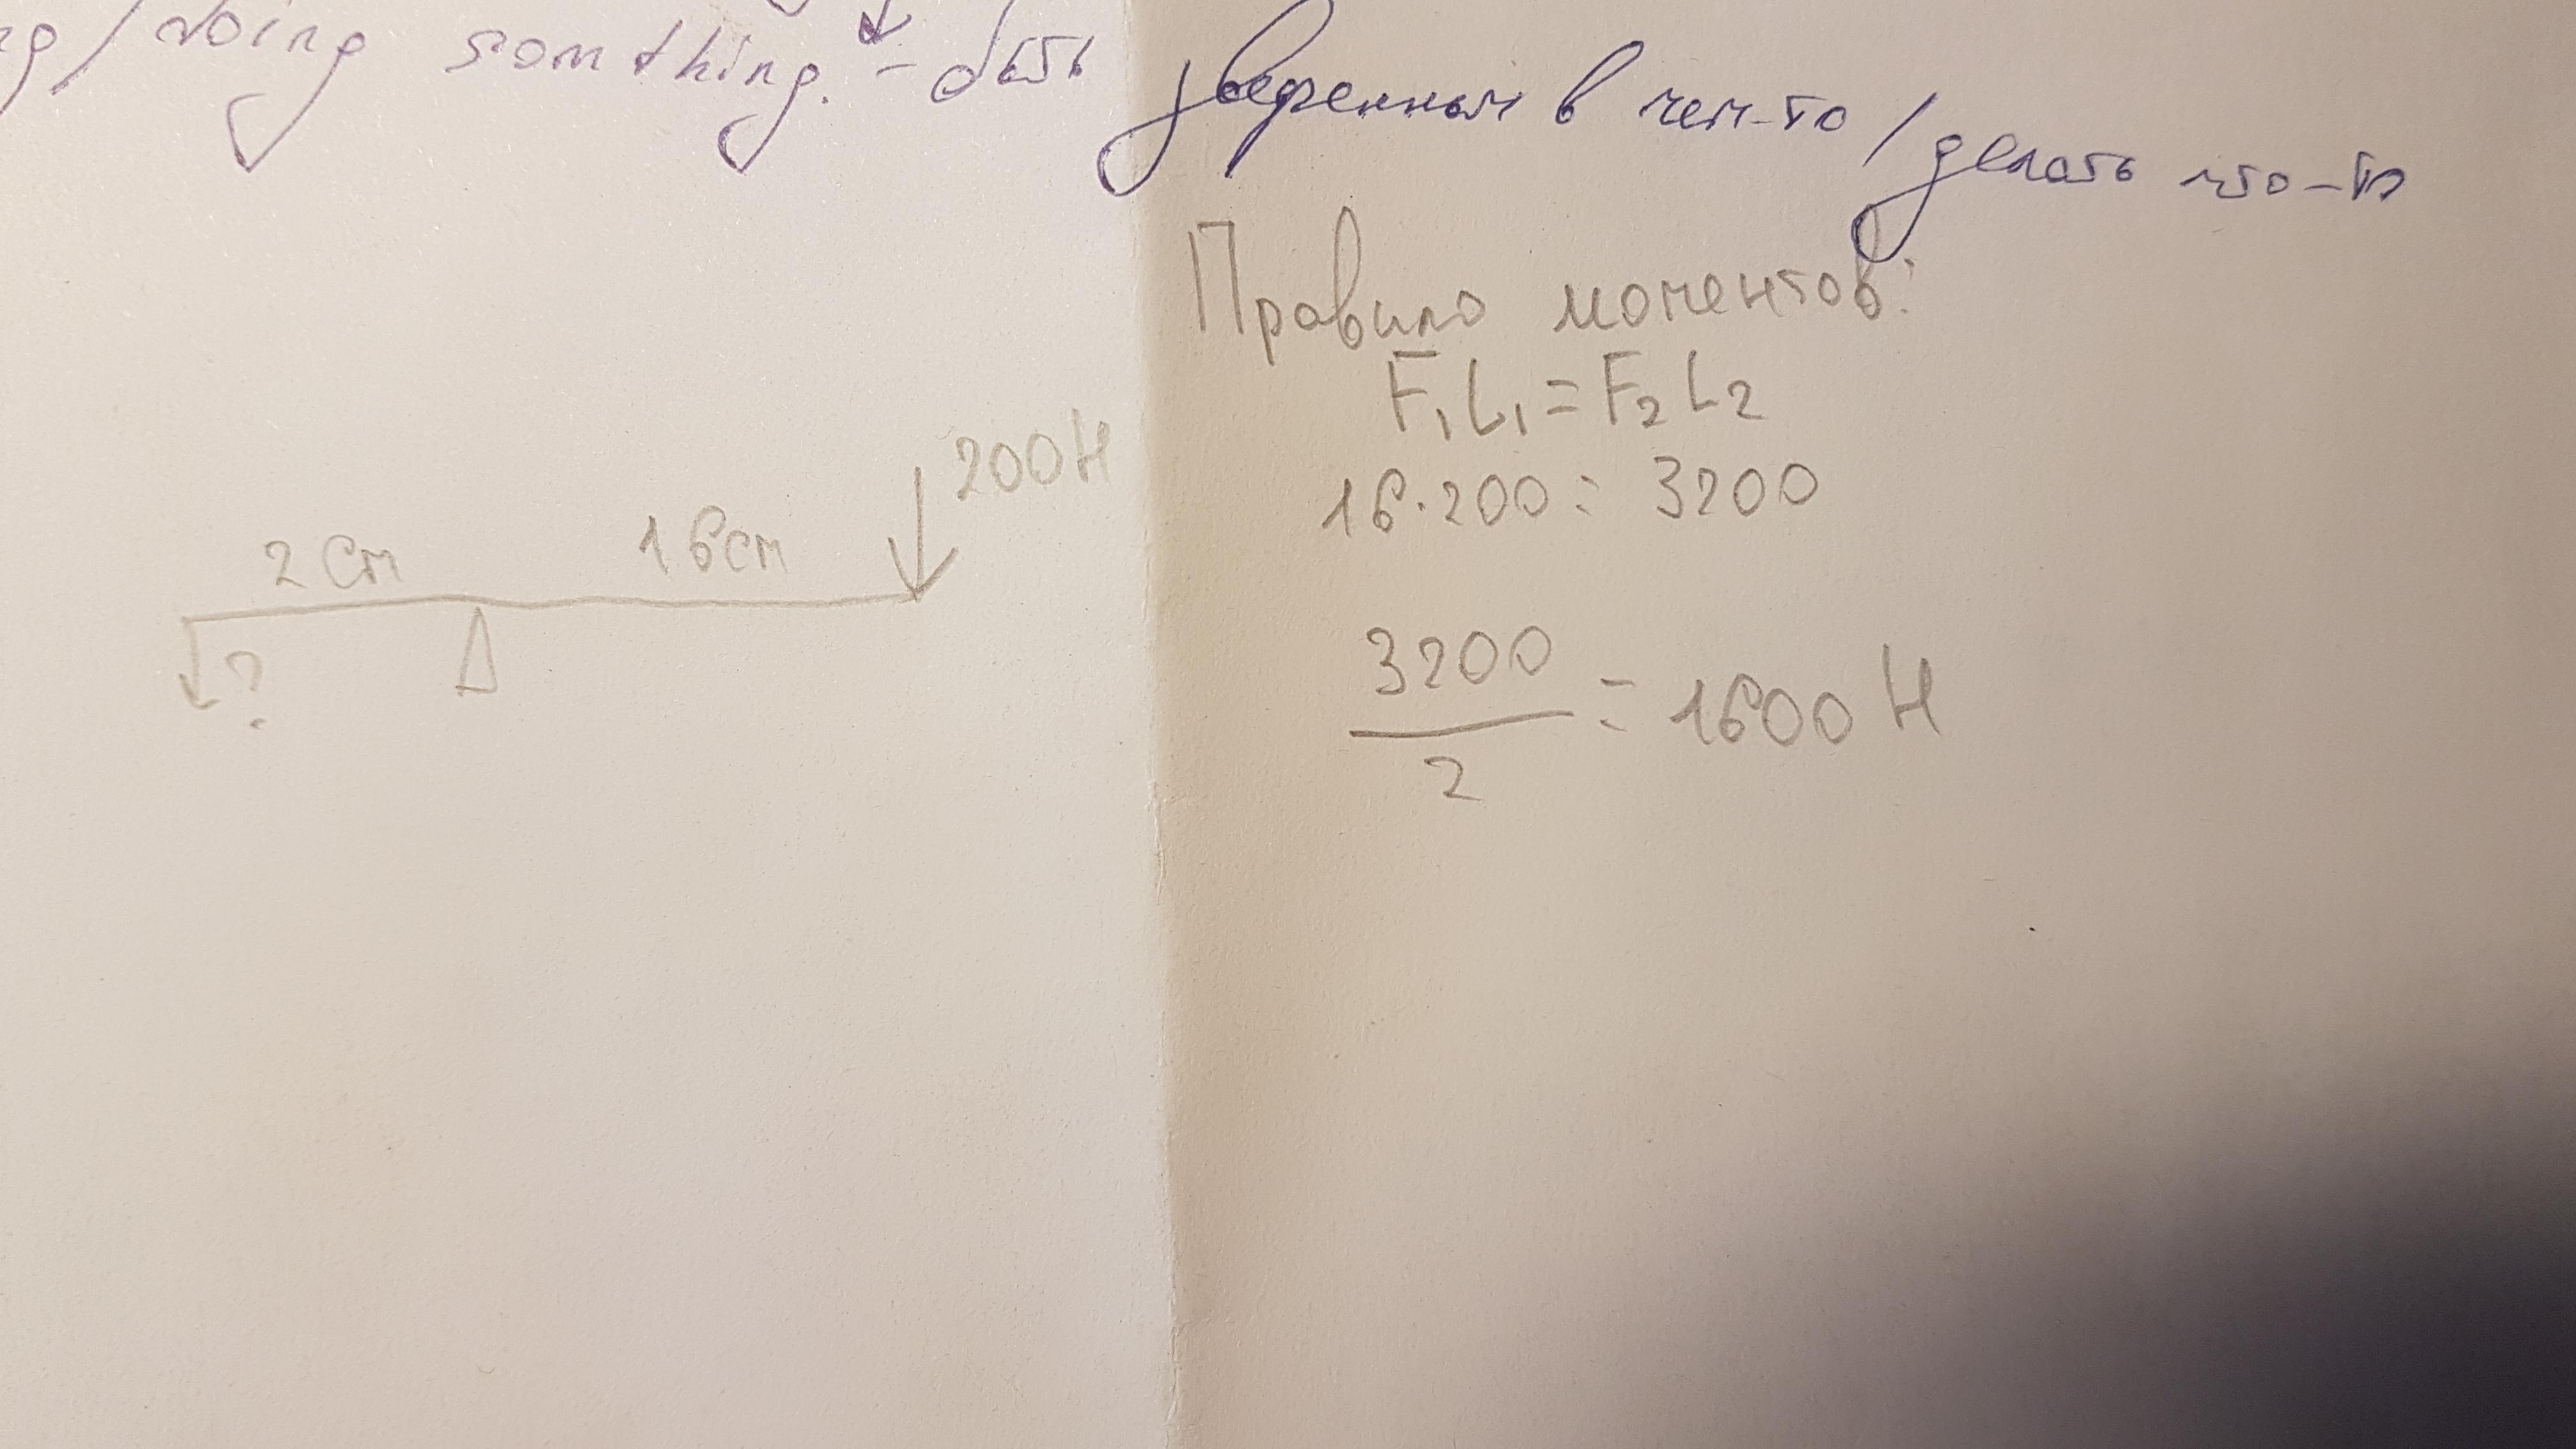 /doing somthing. - быть уверенным в чем-то / делать что-то
Правило моментов:
F₁L₁ = F₂L₂
16·200 = 3200
3200
2
= 1600 Н
200 Н
2 см
16 см
?